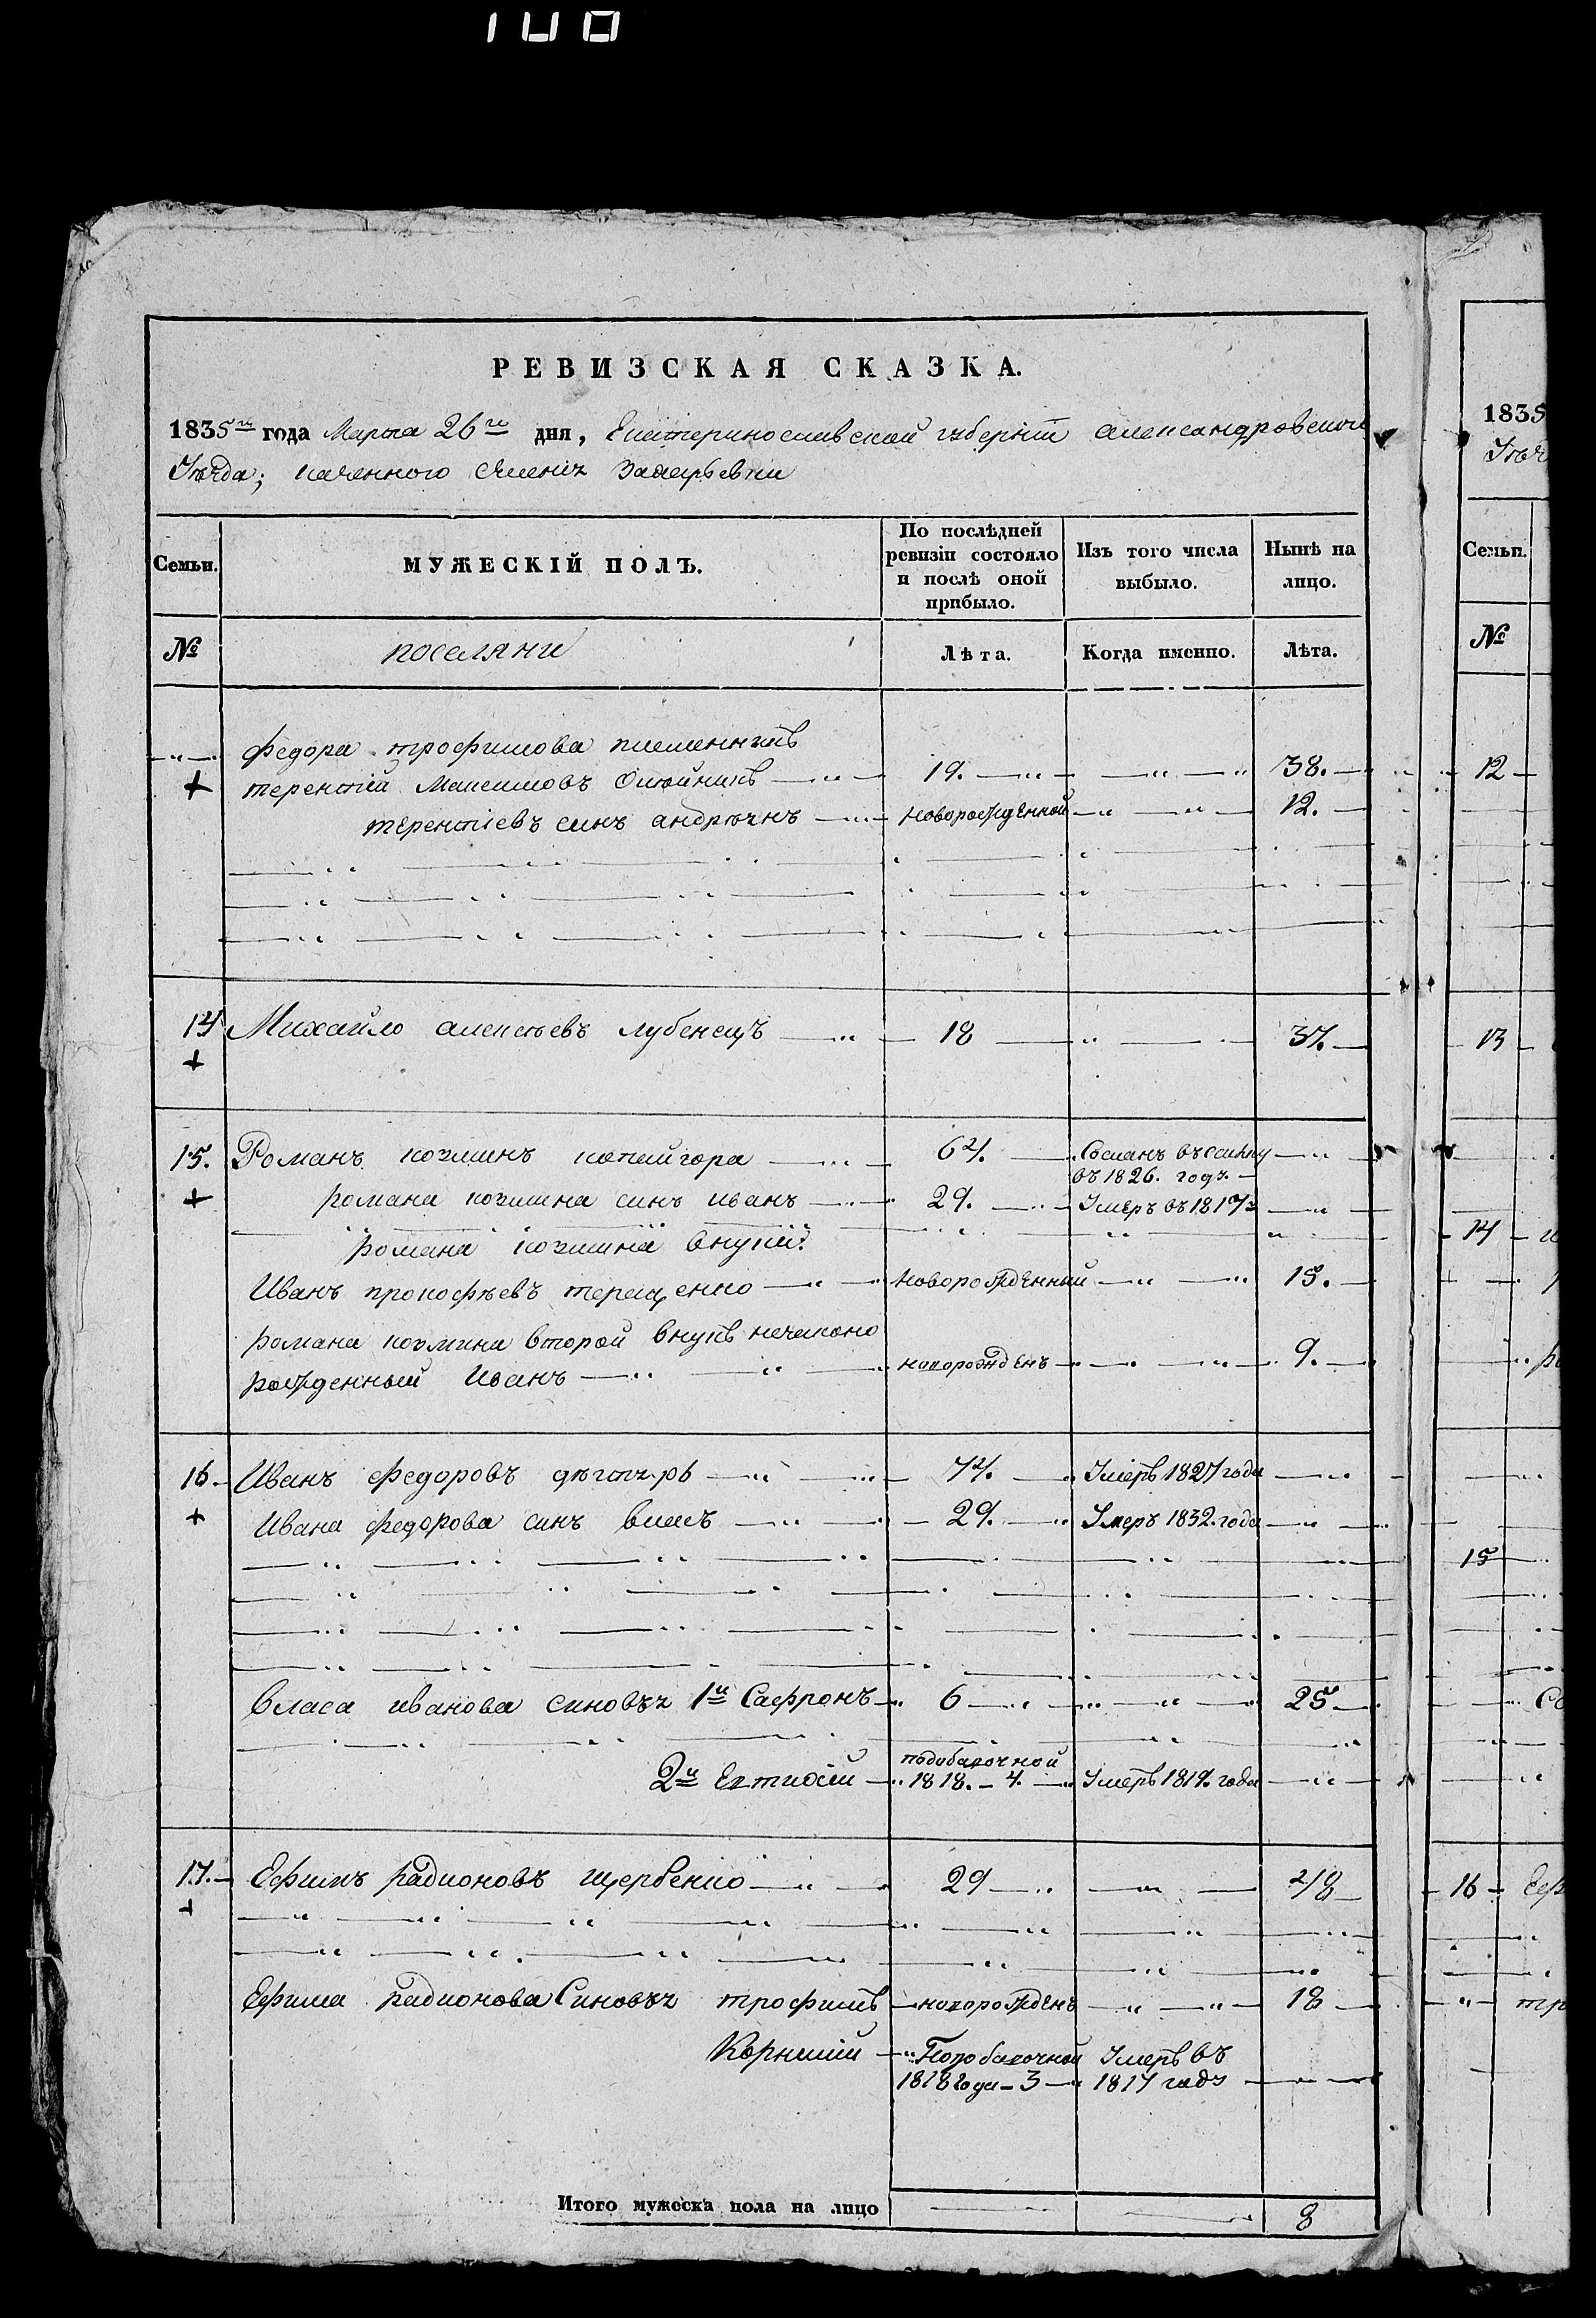 100
РЕВИЗСКАЯ СКАЗКА.
1835го года Марта 26го дня, Екатеринославской губернии александровского
Уезда; казенного Селения
Семьи.
МУЖЕСКІЙ ПОЛЪ.
По послѣдней ревизіи состояло и послѣ оной прибыло.
Изъ того числа выбыло.
Нынѣ на лицо.
№
поселяни
Лѣта.
Когда именно.
Лѣта.
федора трофимова племенникъ
терентій Максимовъ Олюйникъ 19. 38.
терентіевъ синъ андрѣянъ новорожденной 12.
14 Михайло алексѣевъ лубенецъ 18 37.
15. Романъ козминъ копайгора 64. Сосланъ въ ссилку
въ 1826. годѣ.
романа козмина синъ иванъ 29. Умеръ въ 1817
романа козмина внуки:
Иванъ прокофѣевъ терещенко новорожденний 15.
романа козмина второй внукъ незаконо
рожденный Иванъ новорожденъ 9.
16. Иванъ федоровъ дѣгтярь 74. Умеръ 1827 года
Ивана федорова синъ власъ 29. Умеръ 1832. года
власа иванова синовья 1й Сафронъ 6 25
2й Евтихій
1818. - 4. Умеръ 1819. года
17. Ефимъ радионовъ щербенко 29 48
Ефима радионова Синовья трофимъ новорожденъ 18
Корнилий Умеръ въ
1818 года - 3 1817 годѣ
Итого мужеска пола на лицо 8
1835
Семьи.
№
12
13
14
15
16